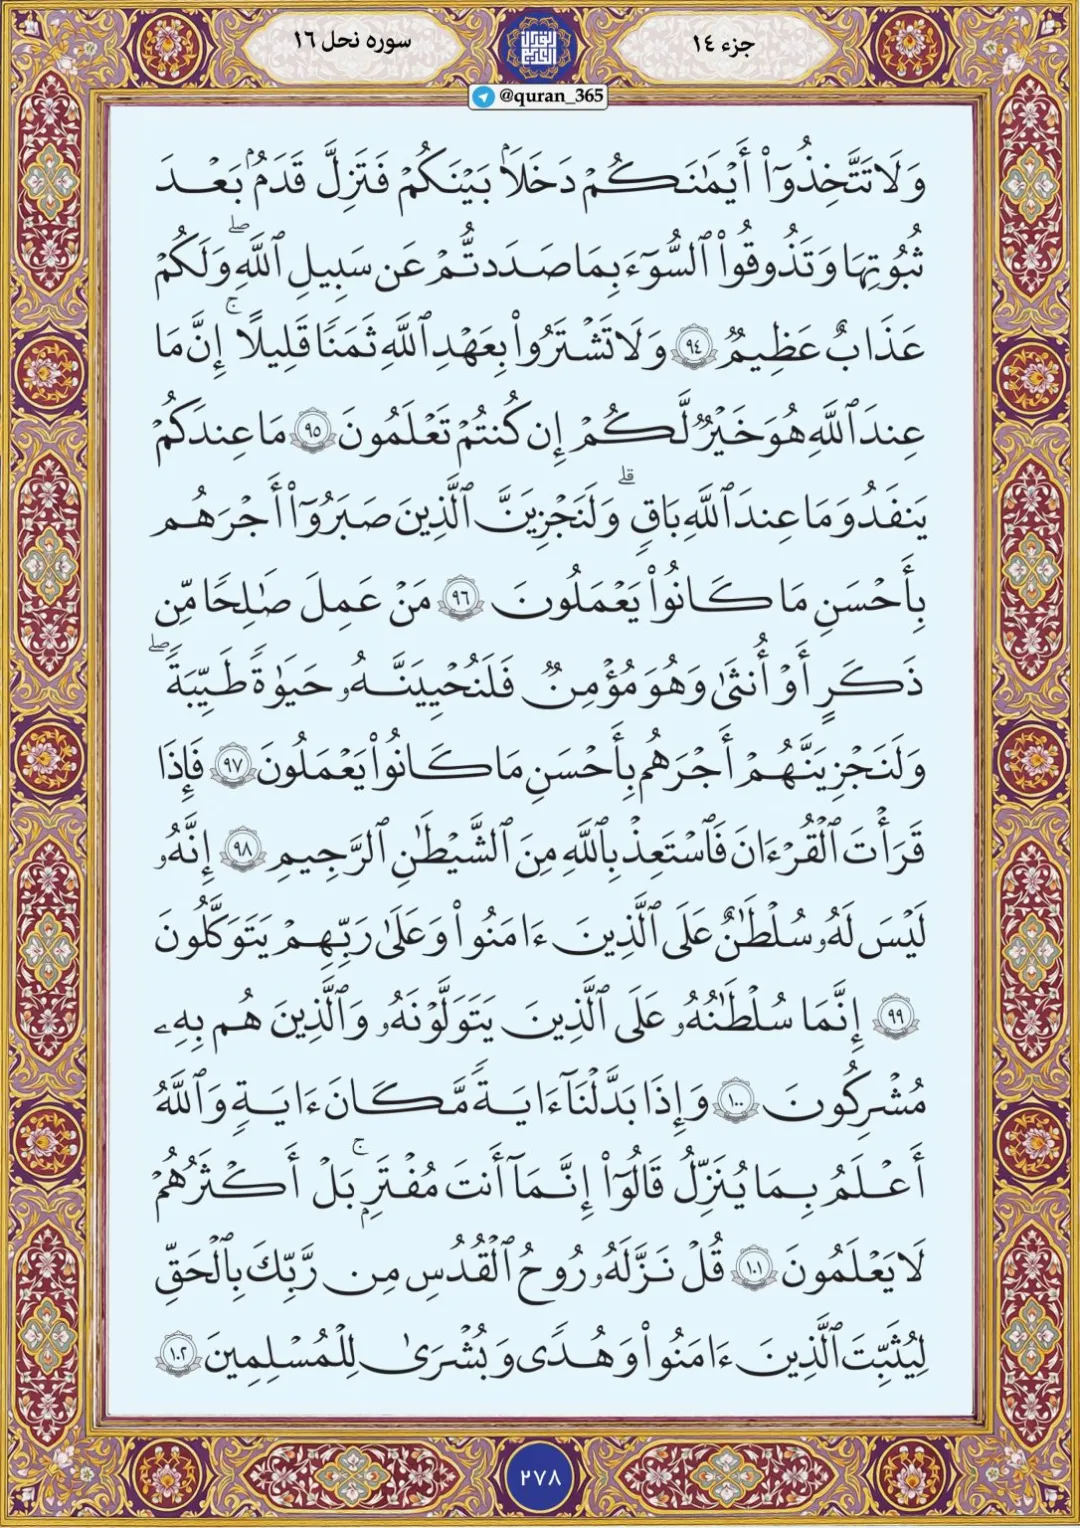 جزء ١٤
القرآن الكريم
سوره نحل ١٦
@quran_365
وَلَا تَتَّخِذُوٓاْ أَيۡمَٰنَكُمۡ دَخَلَۢا بَيۡنَكُمۡ فَتَزِلَّ قَدَمُۢ بَعۡدَ
ثُبُوتِهَا وَتَذُوقُواْ ٱلسُّوٓءَ بِمَا صَدَدتُّمۡ عَن سَبِيلِ ٱللَّهِۖ وَلَكُمۡ
عَذَابٌ عَظِيمٞ ٩٤ وَلَا تَشۡتَرُواْ بِعَهۡدِ ٱللَّهِ ثَمَنٗا قَلِيلًاۚ إِنَّمَا
عِندَ ٱللَّهِ هُوَ خَيۡرٞ لَّكُمۡ إِن كُنتُمۡ تَعۡلَمُونَ ٩٥ مَا عِندَكُمۡ
يَنفَدُ وَمَا عِندَ ٱللَّهِ بَاقٖۗ وَلَنَجۡزِيَنَّ ٱلَّذِينَ صَبَرُوٓاْ أَجۡرَهُم
بِأَحۡسَنِ مَا كَانُواْ يَعۡمَلُونَ ٩٦ مَنۡ عَمِلَ صَٰلِحٗا مِّن
ذَكَرٍ أَوۡ أُنثَىٰ وَهُوَ مُؤۡمِنٞ فَلَنُحۡيِيَنَّهُۥ حَيَوٰةٗ طَيِّبَةٗۖ
وَلَنَجۡزِيَنَّهُمۡ أَجۡرَهُم بِأَحۡسَنِ مَا كَانُواْ يَعۡمَلُونَ ٩٧ فَإِذَا
قَرَأۡتَ ٱلۡقُرۡءَانَ فَٱسۡتَعِذۡ بِٱللَّهِ مِنَ ٱلشَّيۡطَٰنِ ٱلرَّجِيمِ ٩٨ إِنَّهُۥ
لَيۡسَ لَهُۥ سُلۡطَٰنٌ عَلَى ٱلَّذِينَ ءَامَنُواْ وَعَلَىٰ رَبِّهِمۡ يَتَوَكَّلُونَ
٩٩ إِنَّمَا سُلۡطَٰنُهُۥ عَلَى ٱلَّذِينَ يَتَوَلَّوۡنَهُۥ وَٱلَّذِينَ هُم بِهِۦ
مُشۡرِكُونَ ١٠٠ وَإِذَا بَدَّلۡنَآ ءَايَةٗ مَّكَانَ ءَايَةٖ وَٱللَّهُ
أَعۡلَمُ بِمَا يُنَزِّلُ قَالُوٓاْ إِنَّمَآ أَنتَ مُفۡتَرِۭۚ بَلۡ أَكۡثَرُهُمۡ
لَا يَعۡلَمُونَ ١٠١ قُلۡ نَزَّلَهُۥ رُوحُ ٱلۡقُدُسِ مِن رَّبِّكَ بِٱلۡحَقِّ
لِيُثَبِّتَ ٱلَّذِينَ ءَامَنُواْ وَهُدٗى وَبُشۡرَىٰ لِلۡمُسۡلِمِينَ ١٠٢
٢٧٨